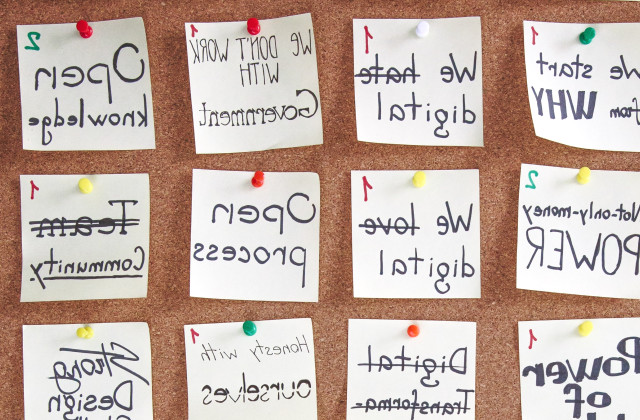 2
Open
knowledge
1
WE DON'T WORK
WITH
Government
1
We hate
digital
1
We start
from WHY
1
Team
Community
Open
process
1
We love
digital
2
Not-only-money
POWER
Strong
Design
1
Honesty with
ourselves
Digital
Transforma-
1
Power
of